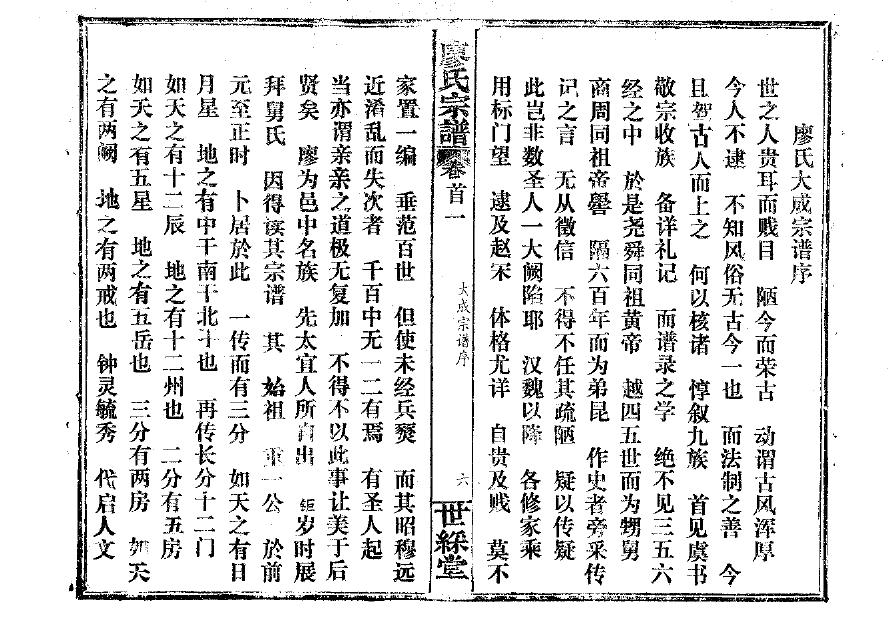 廖氏大成宗谱序
世之人贵耳而贱目 陋今而荣古 动谓古风浑厚
今人不逮 不知风俗无古今一也 而法制之善 今
且驾古人而上之 何以核诸 惇叙九族 首见虞书
敬宗收族 备详礼记 而谱录之学 绝不见三五六
经之中 於是尧舜同祖黄帝 越四五世而为甥舅
商周同祖帝喾 隔六百年而为弟昆 作史者旁采传
记之言 无从徵信 不得不任其疏陋 疑以传疑
此岂非数圣人一大阙陷耶 汉魏以降 各修家乘
用标门望 逮及赵宋 体格尤详 自贵及贱 莫不
廖氏宗譜 卷首一
大成宗谱序
六
世綵堂
家置一编 垂范百世 但使未经兵燹 而其昭穆远
近淆乱而失次者 千百中无一二有焉 有圣人起
当亦谓亲亲之道极无复加 不得不以此事让美于后
贤矣 廖为邑中名族 先太宜人所自出 钜岁时展
拜舅氏 因得读其宗谱 其 始祖 重一公 於前
元至正时 卜居於此 一传而有三分 如天之有日
月星 地之有中干南干北干也 再传长分十二门
如天之有十二辰 地之有十二州也 二分有五房
如天之有五星 地之有五岳也 三分有两房 如天
之有两阙 地之有两戒也 钟灵毓秀 代启人文